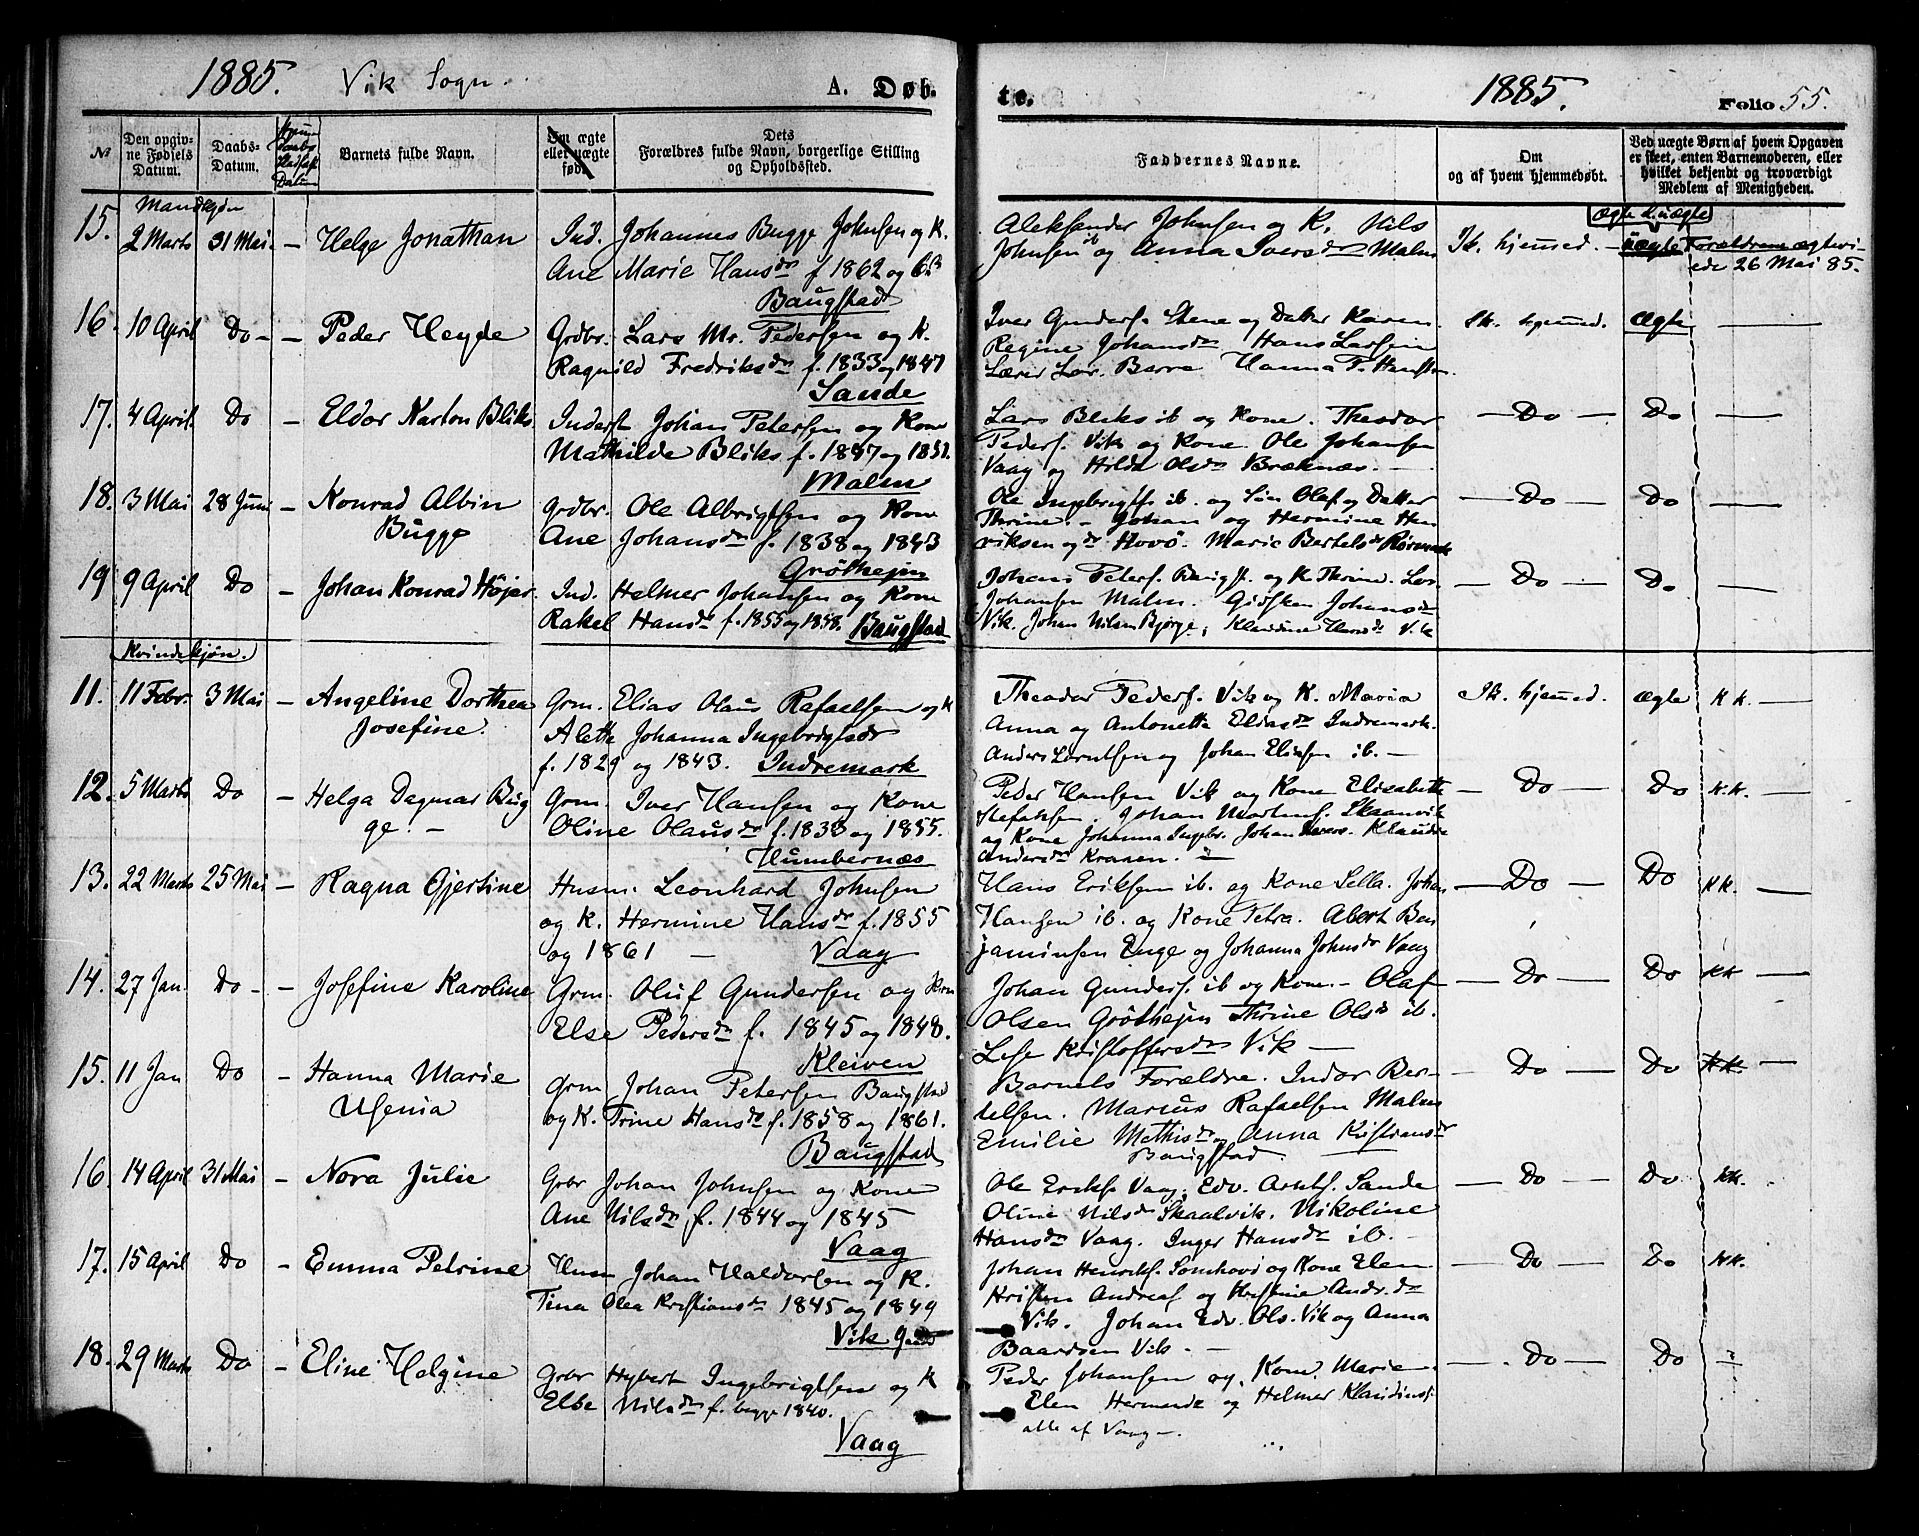 1885. Vik Sogn. A. Døb-
te. 1885. Folio 55.
№ Den opgiv-
ne Fødsels
Datum. Daabs-
Datum. Barnets fulde Navn. Om ægte
eller uægte
født. Dets
Forældres fulde Navn, borgerlige Stilling
og Opholdssted.
Faddernes Navne. Om
og af hvem hjemmedøbt. Ved uægte Børn af hvem Opgaven
er skeet, enten Barnemoderen, eller
hvilket bekjendt og troværdigt
Medlem af Menigheden.
Mandkjøn
ægte l. uægte
15. 2 Marts 31 Mai – Helge Jonathan Ind. Johannes Bugge Johnsen og K.
Ane Marie Hansdr f. 1862 og 63
Baugstad
Aleksander Johnsen og K. Nils
Johnsen ib og Anna Iversdr Malm
Ik. hjemmed. – uægte Forældrene ægtevi-
ede 26 Mai 85.
16. 10 April Do – – Peder Heyde Grdbr. Lars Mr. Pedersen og K.
Ragnild Fredriksdr f. 1833 og 1847
Sande
Iver Gunders. Stene og Datter Karen
Regine Johansdr Hans Larsen
Lærer Lor. Barre Hanna F. Hansen
Ik. hjemmed. ægte
17. 4 April. Do – Eldor Narton Bliks Inderst Johan Petersen og Kone
Mathilde Bliks f. 1847 og 1851.
Malm
Lars Bliks ib og Kone. Theodor
Peders. Vik og Kone. Ole Johansen
Vaag og Hilda Olsdr Braknæs. –
– Do – Do
18. 3 Mai 28 Juni – Konrad Albin
Bugge Grdbr. Ole Albrigtsen og Kone
Ane Johansdr f. 1838 og 1843
Grøthejm
Ole Ingebrigts. ib. og Søn Olaf og Datter
Thrine. – Johan og Hermine Hen
riksen og dr Hovø. Marie Bertelsdr Rørmark
– Do – Do
19 9 April Do – Johan Konrad Højer Ind. Helmer Johansen og Kone
Rakel Hansdr f. 1855 og 1858. Baugstad
Johans Peters. Baugst. og K. Thrine. Lor.
Johansen Malm. Gidsken Johansdr
Vik. Johan Nilsen Bjørge, Klaudine Hansdr Vik
– Do – Do
Kvindekjøn.
11. 11 Febr. 3 Mai – Angeline Dorthea
Josefine. Grm. Elias Olaus Rafaelsen og K
Alette Johanna Ingebrigtsdr
f. 1829 og 1843. Indremark
Theodor Peders. Vik og K. Maria
Anna og Antonetta Eliasdr Indremark.
Anders Lorntsen og Johan Eliasen ib. –
Ik. hjemmed. ægte KK. –
12. 5 Marts Do – Helga Dagmar Bug
ge. – Grm. Iver Hansen og Kone
Oline Olausdr f. 1833 og 1855.
Humbernæs
Peder Hansen Vik og Kone Elisabette
Stefansen. Johan Martinus. Skaanvik
og Kone Johanna Ingebr. Johan Klaudia
Andersdr Kraaen.
– Do – Do K.K. –
13. 22 Marts 25 Mai – Ragna Gjertine Husm. Leonhard Johnsen
og K. Hermine Hansdr f. 1855
og 1861 – Vaag
Hans Eriksen ib. og Kone Sella. Johan
Hansen ib. og Kone Petra. Abert Ben
jaminsen Enge og Johanna Johnsdr Vaag
– Do – Do KK. –
14. 27 Jan Do – – Josefine Karoline Grm. Oluf Gundersen og Kone
Else Pedersdr f. 1845 og 1848.
Kleiven
Johan Gunders. ib og Kone. – Olaf
Olsen Grøthejm Thrine Olsdr ib.
Lese Kristoffersdr Vik –
– Do – Do KK –
15. 11 Jan Do – Hanna Marie
Ugenia Grm Johan Petersen Baugstad
og K. Trine Hansdr f. 1858 og 1861.
Baugstad
Barnets Forældre. Indor Ber-
telsen. Marius Rafaelsen Malm
Emilie Mathisdr og Anna Kristiansdr
Baugstad.
– Do – Do KK –
16. 14 April 31 Mai – Nora Julie Grbr Johan Johnsen og Kone
Ane Nilsdr f. 1844 og 1845
Vaag
Ole Eriks. Vaag. Edv. Arnts. Sande
Oline Nilsdr Skaalvik. Nikoline
Hansdr Vaag. Inger Hansdr ib. –
– Do – Do KK.
17. 15 April Do – Emma Petrine Husm Johan Haldorsen og K.
Tina Olea Kristiansdr 1845 og 1849
Vik
Johan Henriks. Somhovd og Kone Elen
Kristen Andreas og Kristine Andr. dr
Vik. Johan Edv. Ols. Vik og Anna
Baardsen Vik. –
– Do – Do KK.
18. 29 Marts Do – Eline Helgine Grbr Hybert Ingebrigtsen og K
Else Nilsdr f. begge 1840.
Vaag
Peder Johansen og Kone Marie
Elen Hermende og Helmer Klaudinus.
alle af Vaag –.
– Do – Do –